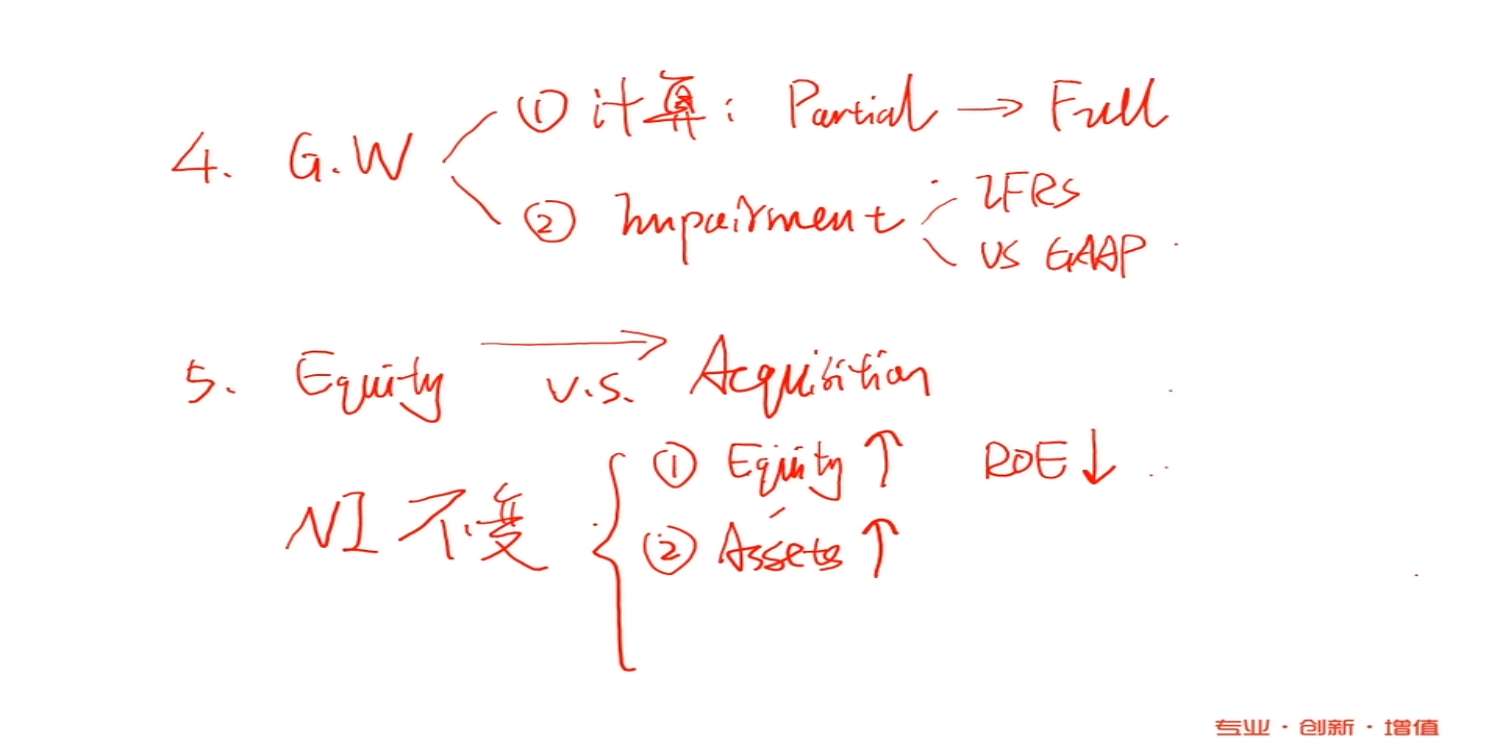 ① 计算: Partial → Full
4. G.W
② Impairment
IFRS
US GAAP
5. Equity → v.s. Acquisition
① Equity ↑ ROE ↓
NI 不变
② Assets ↑
专业·创新·增值